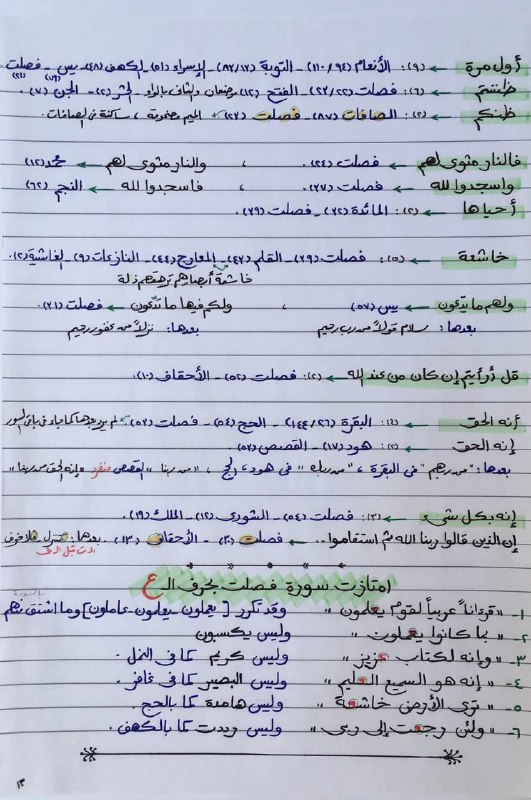 أول مرة ← (٩): الأنعام (٩٤/١١٠) - التوبة (١٣/٨٣) - الإسراء (٥١) - الكهف (٤٨) - يس (٧٩) - فصلت (٢١)
ظننتم ← (٦): فصلت (٢٢/٢٣) - الفتح (١٢) موضعان والثاني بالواو - الحشر (٢) - الجن (٧).
ظنكم ← (٢): الصافات (٨٧) - فصلت (٢٣) ← الميم مضمومة، ساكنة في الصافات.
فالنار مثوى لهم ← فصلت (٢٤) ، والنار مثوى لهم ← محمد (١٢)
واسجدوا لله ← فصلت (٣٧) ، فاسجدوا لله ← النجم (٦٢)
أحياها ← (٢): المائدة (٣٢) - فصلت (٣٩).
خاشعة ← (٥): فصلت (٣٩) - القلم (٤٣) - المعارج (٤٤) - النازعات (٩) - الغاشية (٢).
خاشعة أبصارهم ترهقهم ذلة
ولهم ما يدعون ← يس (٥٧) ، ولكم فيها ما تدعون ← فصلت (٣١).
بعدها: سلام قولاً من رب رحيم بعدها: نزلاً من غفور رحيم
قل أرأيتم إن كان من عند الله ← (٢): فصلت (٥٢) - الأحقاف (١٠).
أنه الحق ← (٤): البقرة (٢٦/١٤٤) - الحج (٥٤) - فصلت (٥٣). ← لم يرد بعدها كما جاء في باقي السور
إنه الحق ← (٢): هود (١٧) - القصص (٥٣)
بعدها: "من ربهم" في البقرة، "من ربك" في هود، الحج، "من ربنا" القصص منفرد «إنه الحق من ربنا»
إنه بكل شيء ← (٣): فصلت (٥٤) - الشورى (١٢) - الملك (١٩).
إن الذين قالوا ربنا الله ثم استقاموا.. ← فصلت (٣٠) - الأحقاف (١٣). بعدها: تتنزل، فلا خوف
امتازت سورة فصلت بحرف الـ ع
١- "قرءاناً عربياً لقوم يعلمون" وقد تكرر [يعملون - يعلمون - عاملون] وما اشتق منهم
٢- "بما كانوا يعملون" وليس يكسبون
٣- "وإنه لكتاب عزيز" وليس كريم كما في النمل.
٤- "إنه هو السميع العليم" وليس البصير كما في غافر.
٥- "ترى الأرض خاشعة" وليس هامدة كما بالحج.
٦- "ولئن رجعت إلى ربي" وليس رددت كما بالكهف.
١٣